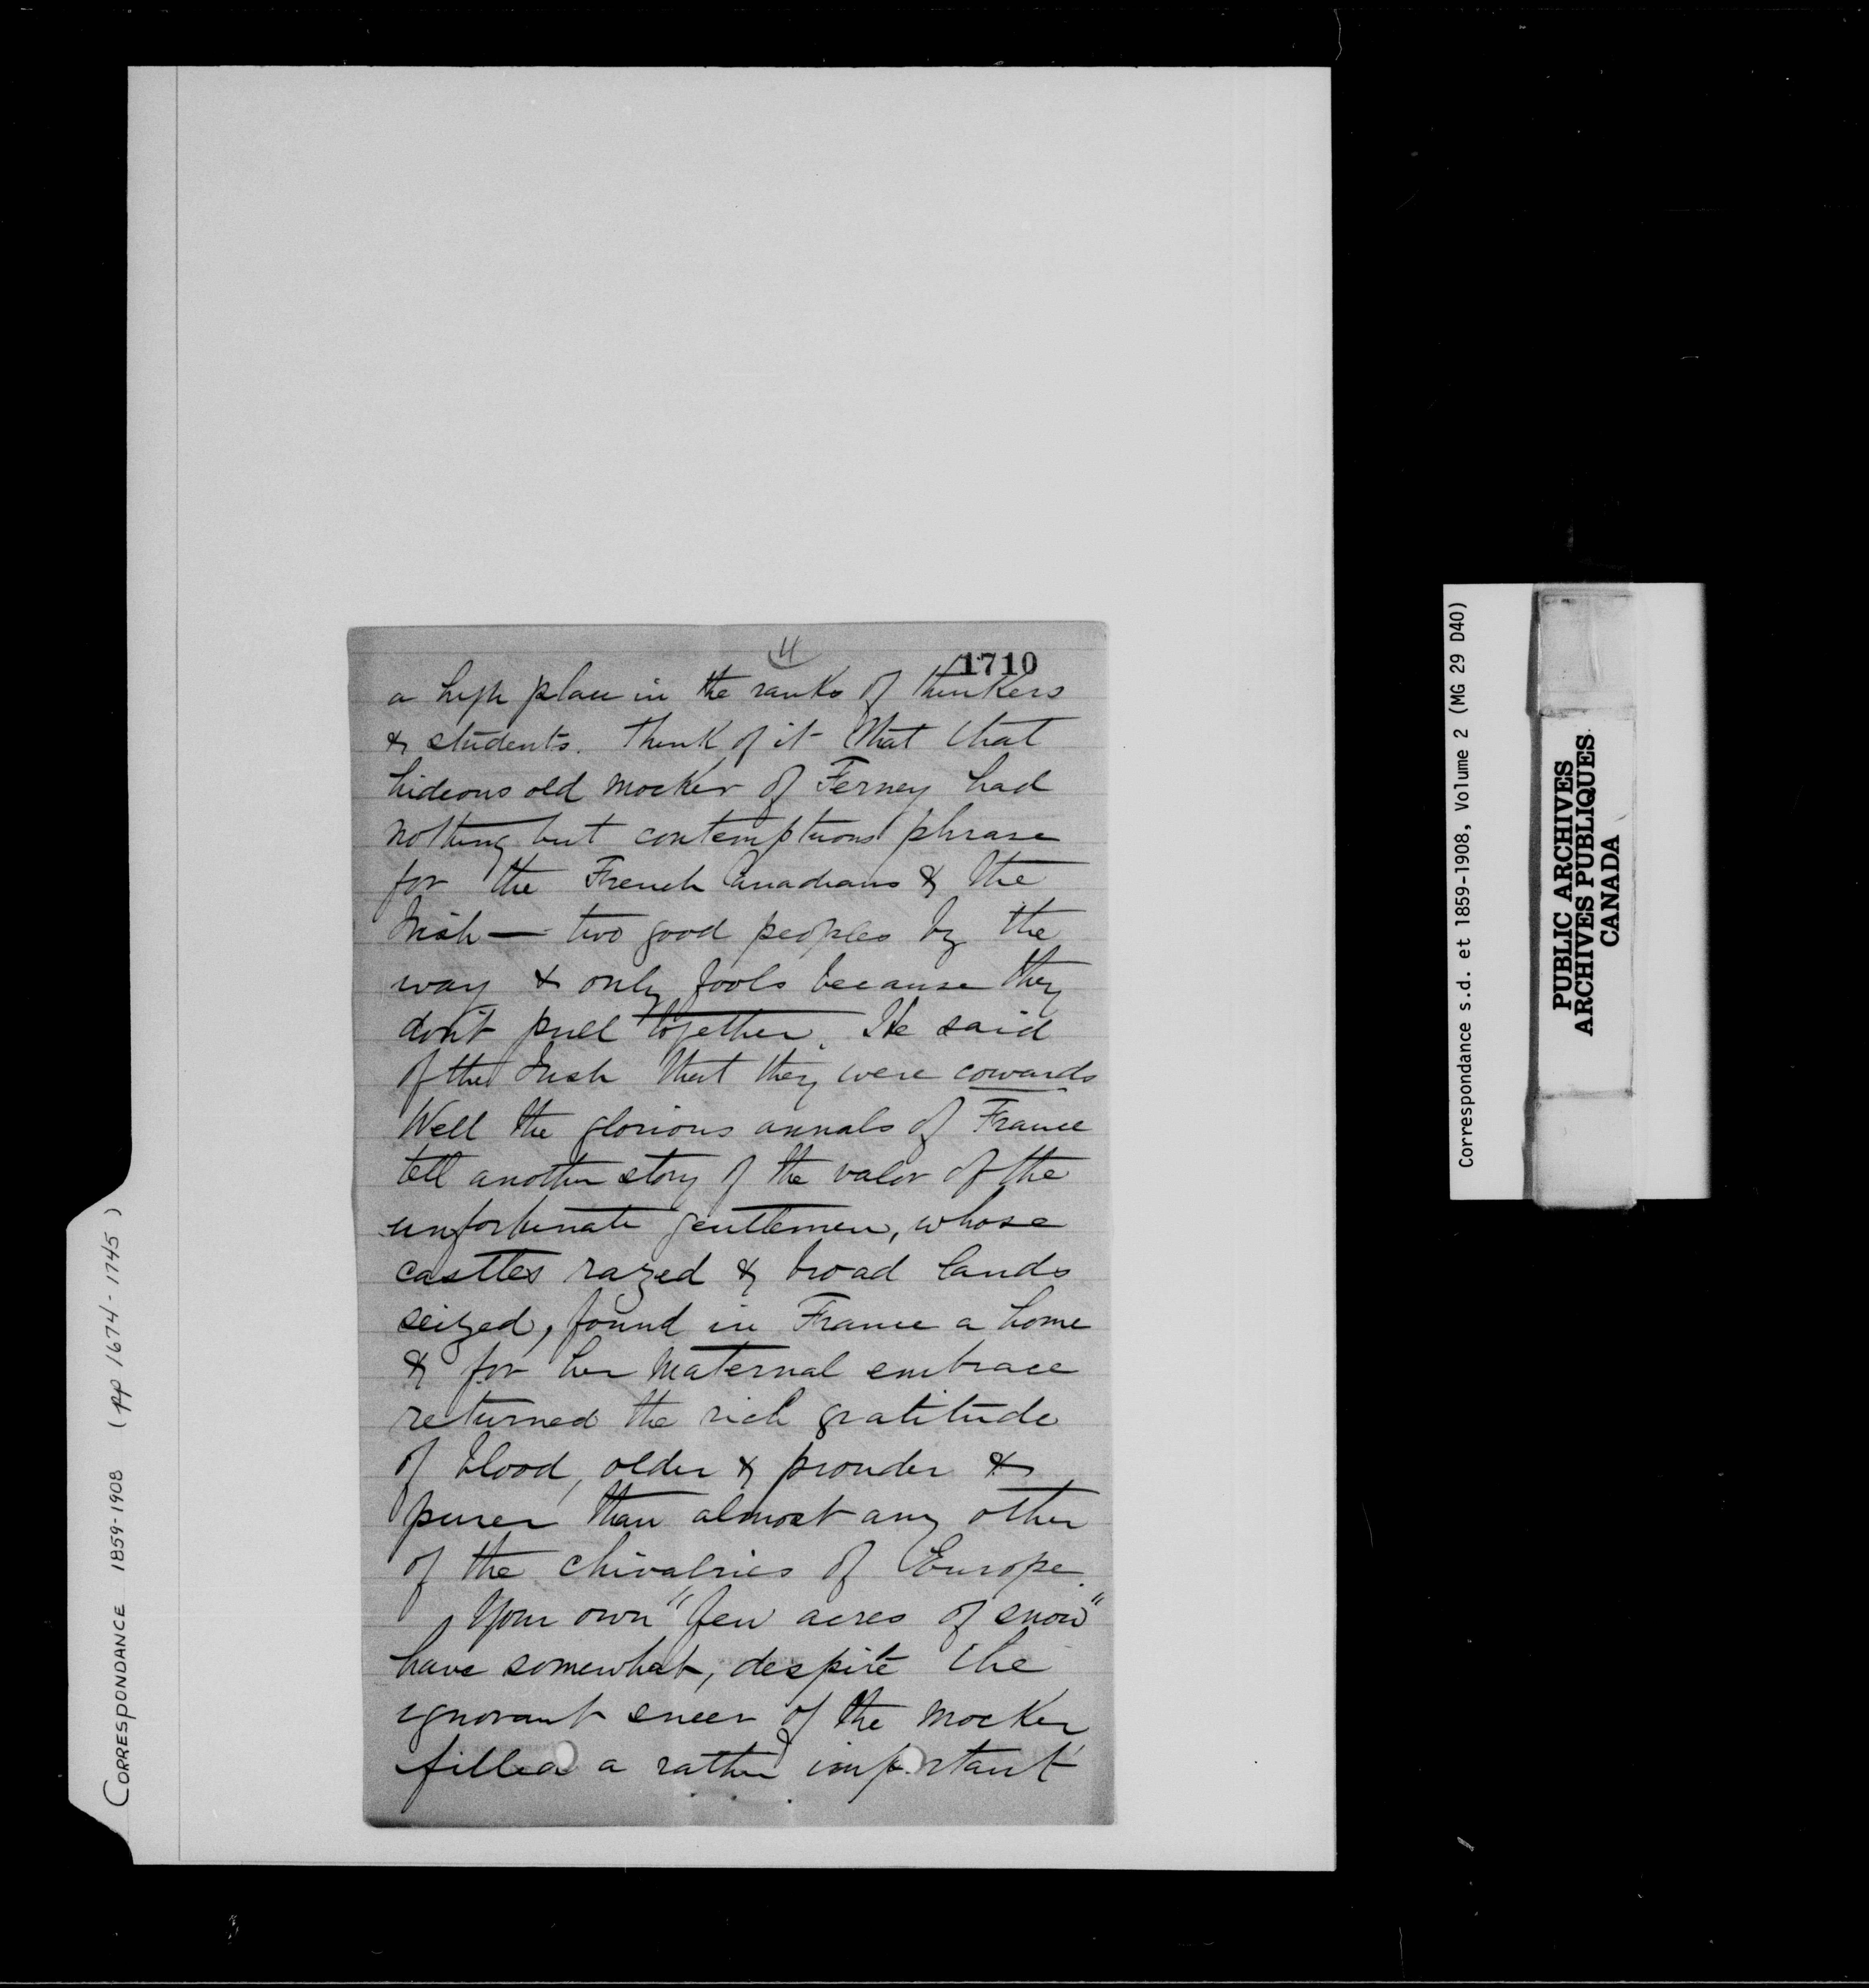 11
1710
a high place in the ranks of thinkers
& students. Think of it that that
hideous old mocker of Ferney had
nothing but contemptuous phrase
for the French Canadians & the
Irish — two good peoples by the
way & only fools because they
don't pull together. He said
of the Irish that they were cowards
Well the glorious annals of France
tell another story of the valor of the
unfortunate gentlemen, whose
castles razed & broad lands
seized, found in France a home
& for her maternal embrace
returned the rich gratitude
of blood, older & prouder &
purer than almost any other
of the chivalries of Europe.
Your own "few acres of snow"
have somewhat, despite the
ignorant sneer of the mocker
filled a rather important
CORRESPONDANCE 1859-1908 (pp 1674-1745)
Correspondance s.d. et 1859-1908, Volume 2 (MG 29 D40)
PUBLIC ARCHIVES
ARCHIVES PUBLIQUES
CANADA